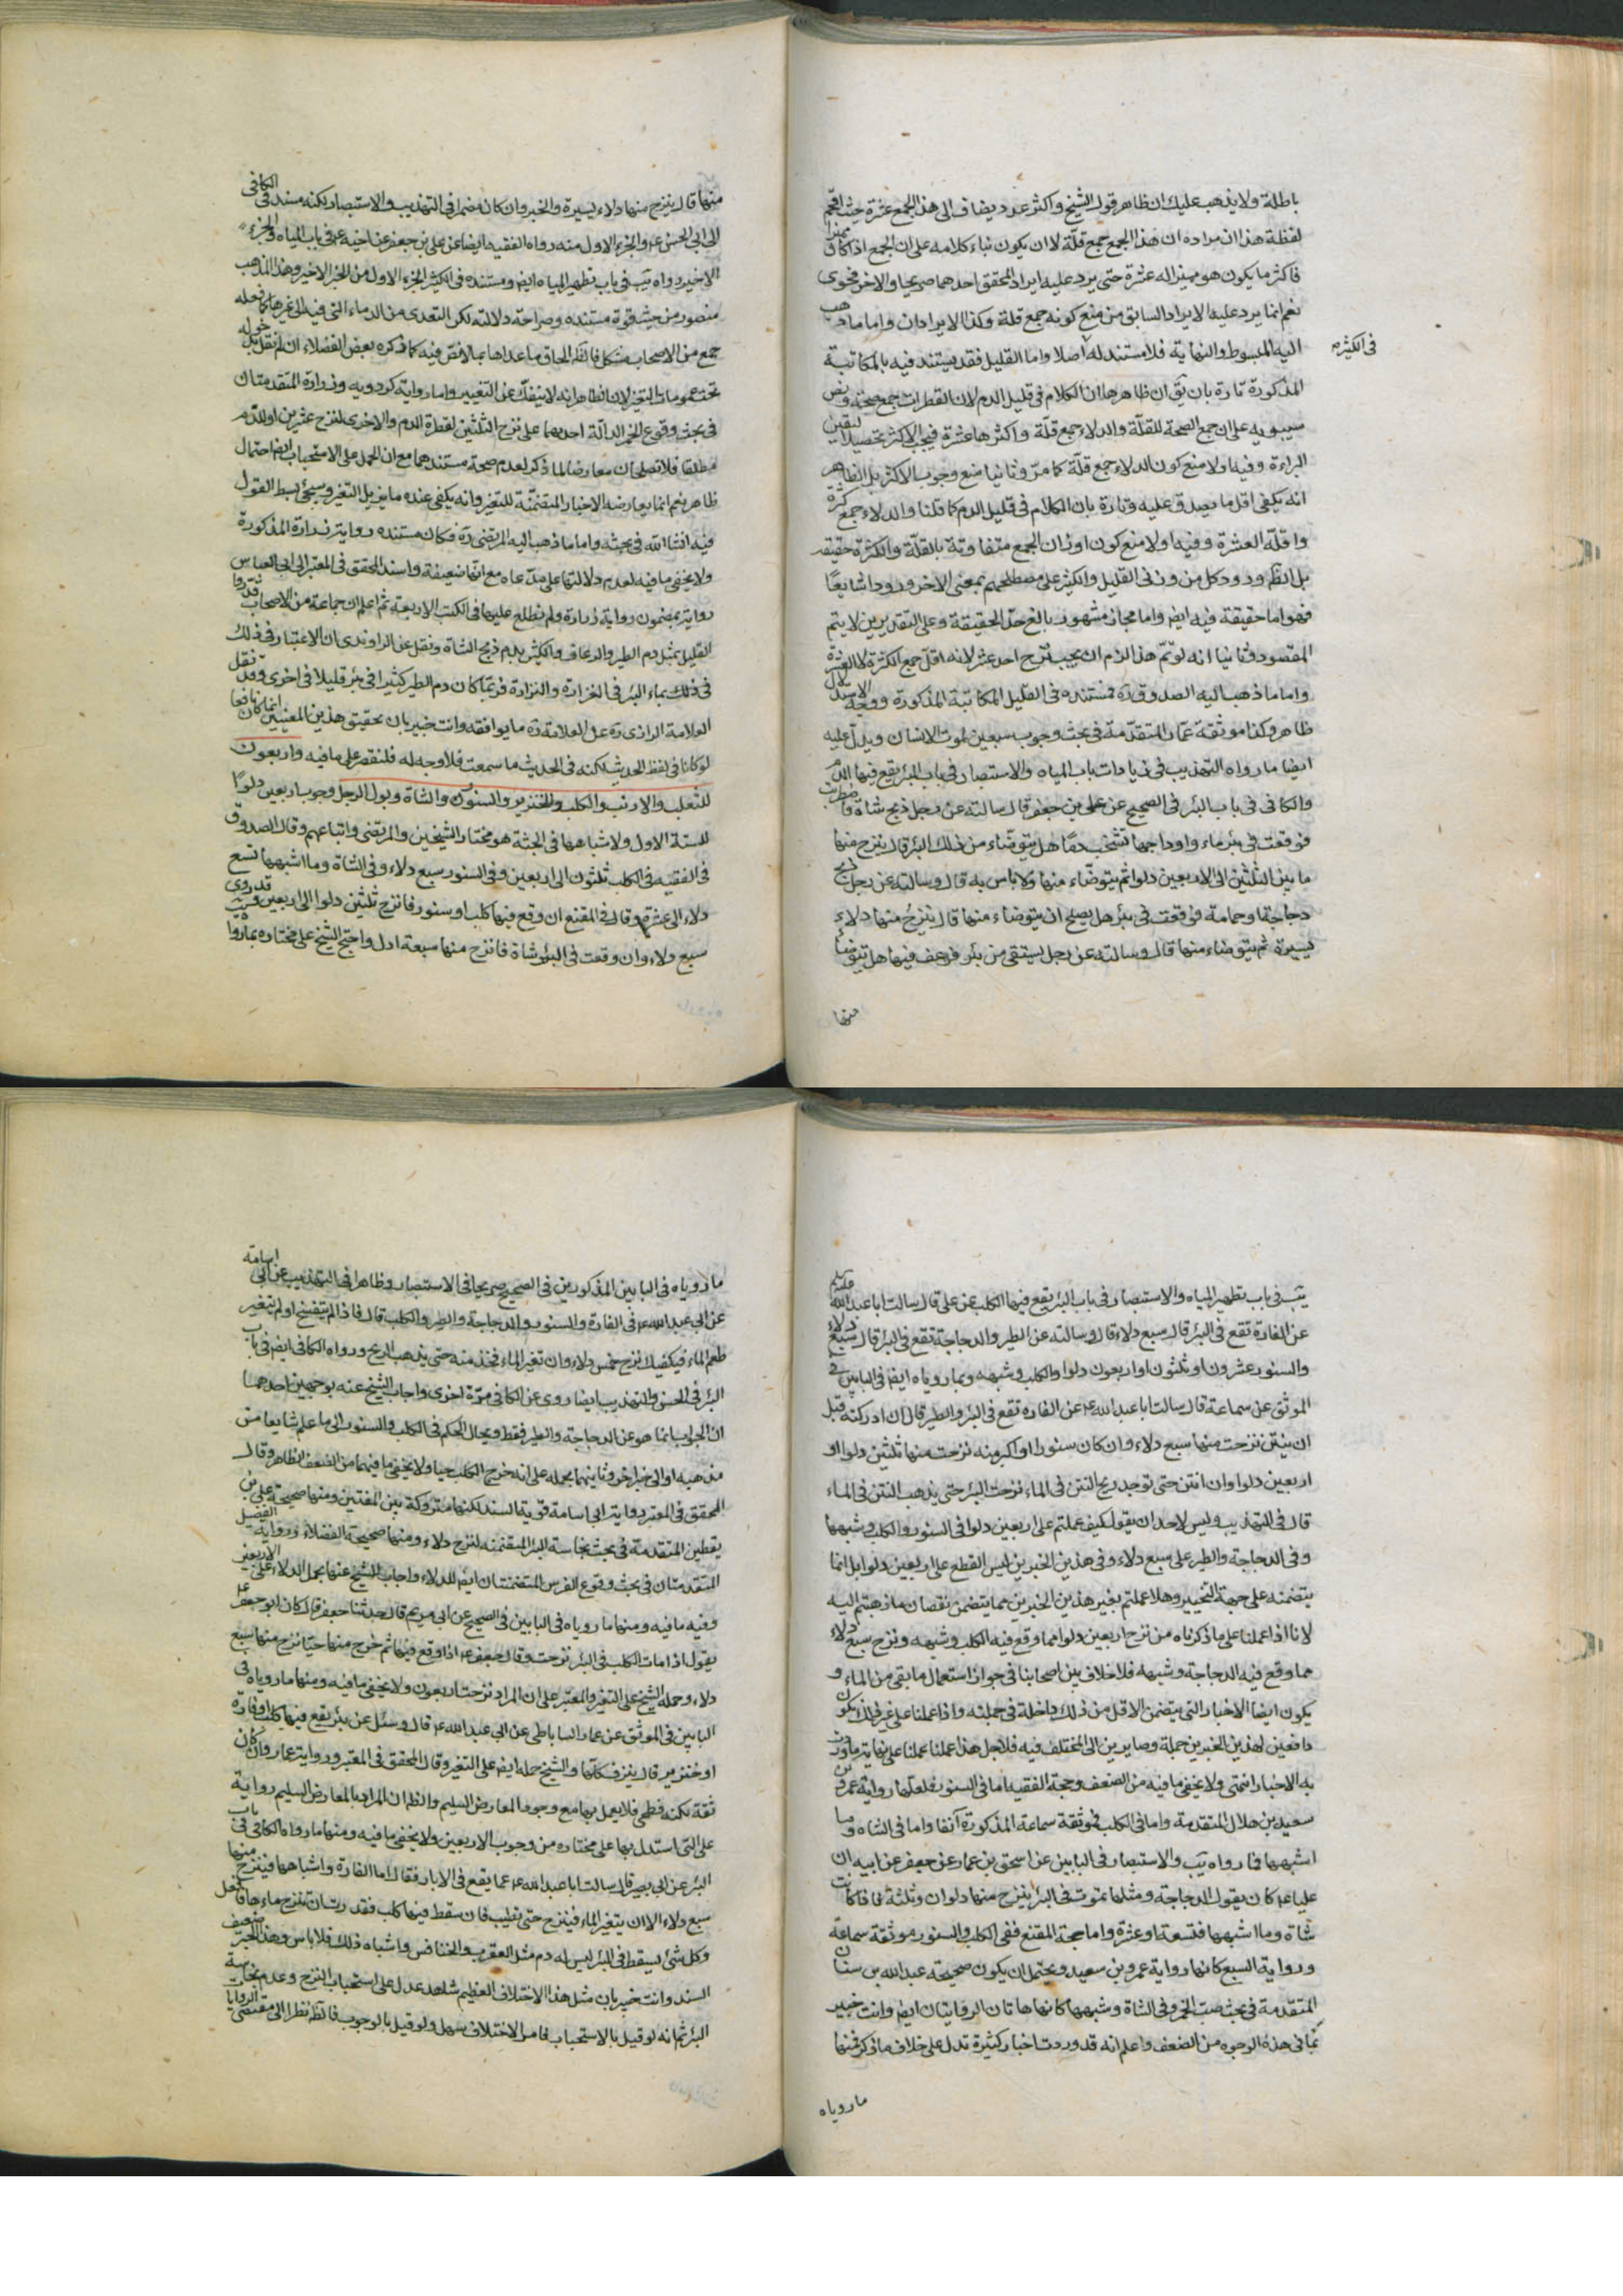 باطلة ولا يذهب عليك ان ظاهر قول الشيخ واكثر عدد يضاف الى هذا الجمع عشرة حيث اقحم
لفظة هذا ان مراده ان هذا الجمع جمع قلّة لا ان يكون بناء كلامه على ان الجمع اذا كان مميزا
فاكثر ما يكون هو مميزا له عشرة حتى يرد عليه ايراد المحقق احدهما صريحا والاخر فحوى
نعم انما يرد عليه الايراد السابق من منع كونه جمع قلة وكذا الايرادان واما ما ذهب
اليه المبسوط والنهاية فلا مستند له اصلا واما القليل فقد يستند فيه بالمكاتبة
في الكثير
المذكورة تارة بان يق ان ظاهرها ان الكلام في قليل الدم لان القطرات جمع صحة ونص
سيبويه على ان جمع الصحة للقلّة والدلاء جمع قلّة واكثرها عشرة فيجب الاكثر تحصيلا ليقين
البراءة وفيه اولا منع كون الدلاء جمع قلّة كما مرّ وثانيا منع وجوب الاكثر بل الظاهر
انه يكفي اقل ما يصدق عليه وتارة بان الكلام في قليل الدم كما قلنا والدلاء جمع كثرة
واقلّه العشرة وفيه اولا منع كون اوزان الجمع متفاوتة بالقلّة والكثرة حقيقة
بل الظ ورود كل من وزني القليل والكثير على مصطلحهم بمعنى الاخر ورودا شايعًا
فهو اما حقيقة فيه ايض واما مجاز مشهور بالغ حدّ الحقيقة وعلى التقديرين لا يتم
المقصود وثانيا انه لو تم هذا لزم ان يجب نزح احد عشر لانه اقل جمع الكثرة لا العشرة
واما ما ذهب اليه الصدوق ره فمستنده في القليل المكاتبة المذكورة ووجه الاستدلال
ظاهر وكذا موثقة عمّار المتقدّمة في بحث وجوب سبعين لموت الانسان ويدل عليه
ايضا ما رواه التهذيب في زيادات باب المياه والاستبصار في باب البئر يقع فيها الدم
والكافي في باب البئر في الصحيح عن علي بن جعفر قال سالته عن رجل ذبح شاة فاضطربت
فوقعت في بئر ماء واوداجها تشخب دمًا هل يتوضاء من ذلك البئر قال ينزح منها
ما بين الثلثين الى الاربعين دلوا ثم يتوضاء منها ولا باس به قال وسالته عن رجل ذبح
دجاجة او حمامة فوقعت في بئر هل يصلح ان يتوضاء منها قال ينزح منها دلاء
يسيرة ثم يتوضاء منها قال وسالته عن رجل يستقى من بئر فرعف فيها هل يتوضأ
منها
منها قال ينزح منها دلاء يسيرة والخبر وان كان مضمرا في التهذيب والاستبصار لكنه مسند في الكافي
الى ابي الحسن ع والجزء الاول منه رواه الفقيه ايضا عن علي بن جعفر عن اخيه ع في باب المياه والجزء
الاخير رواه يب في باب تطهير المياه ايض ومستنده في الكثير الجزء الاول من الخبر الاخير وهذا المذهب
منصور من حيث قوة مستنده وصراحة دلالته لكن التعدي من الدماء التي فيه الى غيرها كما فعله
جمع من الاصحاب مشكل فالظ الحاق ما عداها بما لا نصّ فيه كما ذكره بعض الفضلاء ان لم نقل بدخوله
تحت عمومات التغير لان الظاهر انه لا ينفك عن التغيير واما رواية كردويه وزرارة المتقدمتان
في بحث وقوع الخمر الدالّة احدهما على نزح الثلثين لقطرة الدم والاخرى لنزح عشرين او للدم
مطلقا فلا تصلحان معارضا لما ذكر لعدم صحة مستندهما مع ان الحمل على الاستحباب ايض احتمال
ظاهر نعم انما يعارضه الاخبار المتضمّنة للتغير وانه يكفي عنده ما يزيل التغير وسيجئ بسط القول
فيه انشاء الله في بحثه واما ما ذهب اليه المرتضى ره فكان مستنده رواية زرارة المذكورة
ولا يخفى ما فيه لعدم دلالتها على مدّعاه مع انّها ضعيفة واسند المحقق في المعتبر الى ابي العباس
رواية بمضمون رواية زرارة ولم نطلع عليها في الكتب الاربعة ثم اعلم ان جماعة من الاصحاب قدروا
القليل بمثل دم الطير والرعاف والكثير بدم ذبح الشاة ونقل عن الراوندي ان الاعتبار في ذلك
في ذلك بماء البئر في الغزارة والنزارة فربّما كان دم الطير كثيرا في بئر قليلا في اخرى وقد نقل
العلامة الرازي ره عن العلامة ره ما يوافقه وانت خبير بان تحقيق هذين المعنيين انما كان نافعا
لو كانا في لفظ الحديث لكنه في الحديث ما سمعت فلا وجه له فلنقتصر على ما فيه واربعون
للثعلب والارنب والكلب والخنزير والسنور والشاة وبول الرجل وجوب اربعين دلوًا
للستة الاول ولاشباهها في الجثة هو مختار الشيخين والمرتضى واتباعهم وقال الصدوق
في الفقيه في الكلب ثلثون الى اربعين وفي السنور سبع دلاء وفي الشاة وما اشبهها تسع
دلاء الى عشرة وقال في المقنع ان وقع فيها كلب او سنور فانزح ثلثين دلوا الى اربعين وقد روى
سبع دلاء وان وقعت في البئر شاة فانزح منها سبعة ادل واحتج الشيخ على مختاره بما رواه
يب في باب تطهير المياه والاستبصار في باب البئر يقع فيها الكلب عن علي قال سالت ابا عبد الله
عن الفارة تقع في البئر قال سبع دلاء قال وسالته عن الطير والدجاجة تقع في البئر قال سبع دلاء
والسنور عشرون او ثلثون او اربعون دلوا والكلب وشبهه وبما روياه ايض في البابين في
الموثق عن سماعة قال سالت ابا عبد الله ع عن الفارة تقع في البئر والطير قال ان ادركته قبل
ان ينتن نزحت منها سبع دلاء وان كان سنورا او اكبر منه نزحت منها ثلثين دلوا او
اربعين دلوا وان انتن حتى توجد ريح النتن في الماء نزحت البئر حتى يذهب النتن في الماء
قال في التهذيب وليس لاحد ان يقول كيف عملتم على اربعين دلوا في السنور والكلب وشبهها
وفي الدجاجة والطير على سبع دلاء وفي هذين الخبرين ليس القطع على اربعين دلوا بل انما
يتضمنه على جهة التخيير وهلا عملتم بغير هذين الخبرين مما يتضمن نقصان ما ذهبتم اليه
لانا اذا عملنا على ما ذكرناه من نزح اربعين دلوا مما وقع فيه الكلب وشبهه ونزح سبع دلاء
مما وقع فيه الدجاجة وشبهه فلا خلاف بين اصحابنا في جواز استعمال ما بقى من الماء و
يكون ايضا الاخبار التي يتضمن الاقل من ذلك داخلة في جملته واذا عملنا على غير ذلك نكون
دافعين لهذين الخبرين جملة وصايرين الى المختلف فيه فلاجل هذا عملنا عملنا على نهاية ما وردت
به الاخبار انتهى ولا يخفى ما فيه من الضعف وحجة الفقيه اما في السنور فلعلها رواية عمرو بن
سعيد بن هلال المتقدمة واما في الكلب فموثقة سماعة المذكورة آنفا واما في الشاه وما
اشبهها فما رواه يب في البابين والاستبصار عن اسحق بن عمار عن جعفر عن ابيه ان
عليا ع كان يقول الدجاجة ومثلها تموت في البئر ينزح منها دلوان وثلثة فاذا كانت
شاة وما اشبهها فتسعة او عشرة واما حجة المقنع ففي الكلب والسنور موثقة سماعة
ورواية السبع كانها رواية عمرو بن سعيد ويحتمل ان يكون صحيحة عبد الله بن سنان
المتقدمة في بحث صب الخمر وفي الشاة وشبهها كانها هاتان الروايتان ايض وانت خبير
بما في هذه الوجوه من الضعف واعلم انه قد وردت اخبار كثيرة تدل على خلاف ما ذكر فمنها
ما روياه
ما روياه في البابين المذكورين في الصحيح صريحا في الاستبصار وظاهرا في التهذيب عن ابي اسامة
عن ابي عبد الله ع في الفارة والسنور والدجاجة والطير والكلب قال فاذا لم يتفسخ او لم يتغير
طعم الماء فيكفيك نزح خمس دلاء وان تغير الماء فخذ منه حتى يذهب الريح ورواه الكافي ايض في باب
البئر في الحسن والتهذيب ايضا روى عن الكافي مرّة اخرى واجاب الشيخ عنه بوجهين احدهما
ان الجواب انما هو عن الدجاجة والطير فقط ويحال الحكم في الكلب والسنور الى ما علم شايعا من
مذهبه او الى خبر اخر وثانيهما بحمله على انه خرج الكلب حيا ولا يخفى ما فيهما من الضعف الظاهر وقال
المحقق في المعتبر رواية ابي اسامة قوية السند لكنها متروكة بين المفتين ومنها صحيحة علي بن
يقطين المتقدمة في بحث نجاسة البئر المتضمنة لنزح دلاء ومنها صحيحة الفضلاء ورواية الفضل
المتقدمتان في بحث وقوع الفرس المتضمنتان ايض للدلاء واجاب الشيخ عنها بحمل الدلاء على الاربعين
وفيه ما فيه ومنها ما روياه في البابين في الصحيح عن ابي مريم قال حدثنا جعفر قال كان ابو جعفر ع
يقول اذا مات الكلب في البئر نزحت وقال جعفر ع اذا وقع فيها ثم خرج منها حيّا نزح منها سبع
دلاء وحمله الشيخ على التغير والمعتبر على ان المراد نزحت اربعون ولا يخفى ما فيه ومنها ما روياه في
البابين في الموثق عن عمار الساباطي عن ابي عبد الله ع قال وسئل عن بئر يقع فيها كلب او فارة
او خنزير قال ينزف كلها والشيخ حمله ايض على التغير وقال المحقق في المعتبر ورواية عمار وان كان
ثقة لكنه فطحي فلا يعمل بها مع وجود المعارض السليم والظ ان المراد بالمعارض السليم رواية
علي التي استدل بها على مختاره من وجوب الاربعين ولا يخفى ما فيه ومنها ما رواه الكافي في باب
البئر عن ابي بصير قال سالت ابا عبد الله ع عما يقع في الابار فقال اما الفارة واشباهها فينزح منها
سبع دلاء الا ان يتغير الماء فينزح حتى تطيب فان سقط فيها كلب فقدرت ان تنزح ماءها فافعل
وكل شئ يسقط في البئر ليس له دم مثل العقرب والخنافس واشباه ذلك فلا باس وهذا الخبر ضعيف
السند وانت خبير بان مثل هذا الاختلاف العظيم شاهد عدل على استحباب النزح وعدم نجاسة
البئر ثم انه لو قيل بالاستحباب فامر الاختلاف سهل ولو قيل بالوجوب فالظ نظرا الى مقتضى الروايات